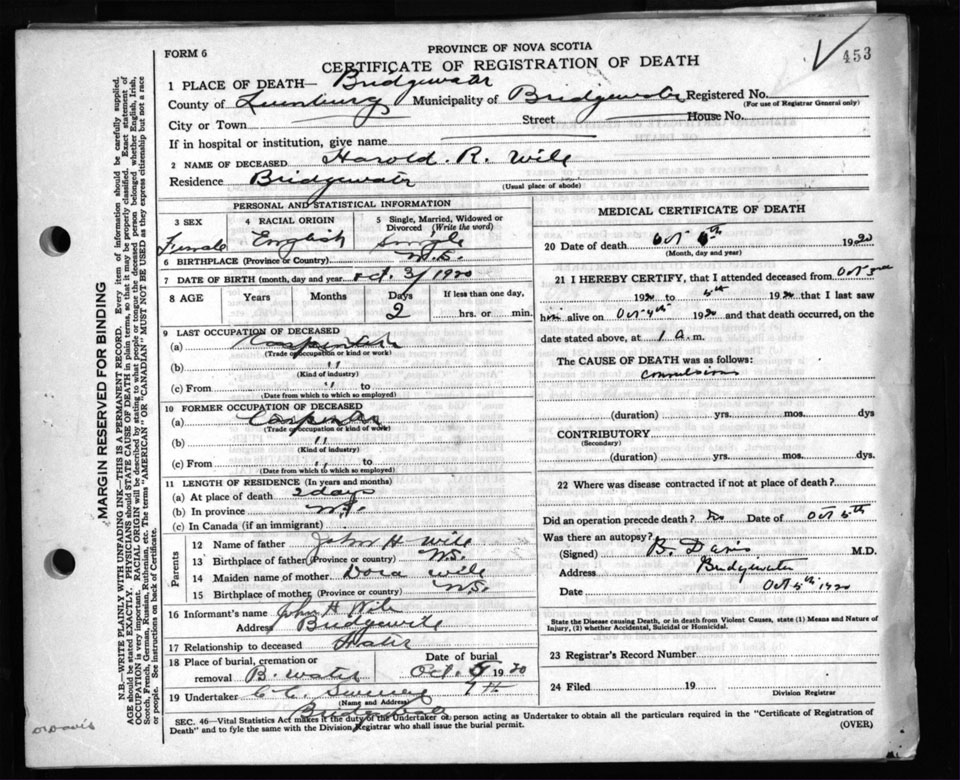 453
FORM 6
PROVINCE OF NOVA SCOTIA
CERTIFICATE OF REGISTRATION OF DEATH
1 PLACE OF DEATH— Bridgewater
County of Lunenburg Municipality of Bridgewater Registered No.
(For use of Registrar General only)
City or Town Street House No.
If in hospital or institution, give name
2 NAME OF DECEASED Harold. R. Wile
Residence Bridgewater
(Usual place of abode)
PERSONAL AND STATISTICAL INFORMATION
3 SEX 4 RACIAL ORIGIN 5 Single, Married, Widowed or Divorced (Write the word)
Female English Single
6 BIRTHPLACE (Province or Country) N.S.
7 DATE OF BIRTH (month, day and year) Oct. 3/1920
8 AGE Years Months Days If less than one day,
2 hrs. or min.
9 LAST OCCUPATION OF DECEASED
(a) Carpenter
(Trade or occupation or kind or work)
(b) "
(Kind of industry)
(c) From " to
(Date from which to which so employed)
10 FORMER OCCUPATION OF DECEASED
(a) Carpenter
(Trade or occupation or kind of work)
(b) "
(Kind of industry)
(c) From " to
(Date from which to which so employed)
11 LENGTH OF RESIDENCE (In years and months)
(a) At place of death 2 days
(b) In province N.S.
(c) In Canada (if an immigrant)
Parents
12 Name of father John H Wile
13 Birthplace of father (Province or country) N.S.
14 Maiden name of mother Dora Wile
15 Birthplace of mother (Province or country) N.S.
16 Informant's name John H Wile
Address
17 Relationship to deceased
18 Place of burial, cremation or removal B. water
Date of burial Oct. 1920
7th
19 Undertaker
(Name and Address)
MEDICAL CERTIFICATE OF DEATH
20 Date of death Oct 1920
(Month, day and year)
21 I HEREBY CERTIFY, that I attended deceased from Oct
192 to 5th 192 that I last saw
him alive on Oct 4th 192 and that death occurred, on
date stated above, at 1 a.m.
The CAUSE OF DEATH was as follows:
Convulsions
(duration) yrs. mos. dys
CONTRIBUTORY
(Secondary)
(duration) yrs. mos. dys.
22 Where was disease contracted if not at place of death?
Did an operation precede death? No Date of Oct 5th
Was there an autopsy?
(Signed) B. Davis M.D.
Address Bridgewater
Date Oct 5th 1920
State the Disease causing Death, or in death from Violent Causes, state (1) Means and Nature of
Injury, (2) whether Accidental, Suicidal or Homicidal.
23 Registrar's Record Number
24 Filed 19
Division Registrar
SEC. 46—Vital Statistics Act makes it the duty of the Undertaker or person acting as Undertaker to obtain all the particulars required in the "Certificate of Registration of
Death" and to fyle the same with the Division Registrar who shall issue the burial permit. (OVER)
MARGIN RESERVED FOR BINDING
N.B.—WRITE PLAINLY WITH UNFADING INK—THIS IS A PERMANENT RECORD. Every item of information should be carefully supplied.
AGE should be stated EXACTLY. PHYSICIANS should STATE CAUSE OF DEATH in plain terms, so that it may be properly classified. Exact statement of
OCCUPATION is very important. RACIAL ORIGIN will be described by stating to what people or tongue the deceased person belonged whether English, Irish,
Scotch, French, German, Russian, Ruthenian, etc. The terms "AMERICAN" OR "CANADIAN" MUST NOT BE USED as they express citizenship but not a race
or people. See instructions on back of Certificate.